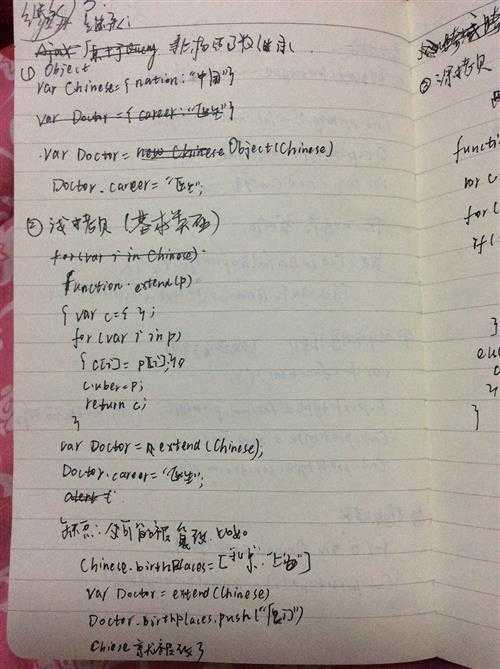 继承
继承:
Ajax 基于jQuery 非构造函数继承.
① Object
var Chinese={nation:"中国"}
var Doctor={career:"医生"}
var Doctor=new Chinese Object(Chinese)
Doctor.career="医生";
② 浅拷贝(基本类型)
for(var i in Chinese)
function extend(p)
{ var c={};
for(var i in p)
{ c[i]=p[i];}
c.uber=p;
return c;
}
var Doctor= extend(Chinese);
Doctor.career="医生";
alert(
缺点:
Chinese.birthPlaces=["北京","上海"]
var Doctor=extend(Chinese)
Doctor.birthplaces.push("厦门")
Chiese 就被改了
② 深拷贝
functi
for(
if(
}
}
}